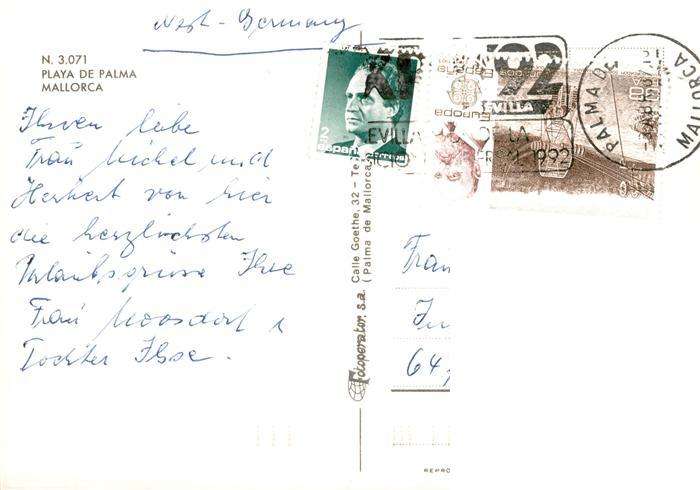 West-Germany
N. 3.071
PLAYA DE PALMA
MALLORCA
Ihnen liebe
Frau Michel und
Herbert von hier
die herzlichsten
Urlaubsgrüsse Ihre
Frau Moosdorf u
Tochter Ilse.
2
españa
92
SEVILLA
Europa
1992
PALMA DE
MALLORCA
Calle Goethe, 32 - Te
(Palma de Mallorca
Fotoperator, s.a.
Frau
64
REPRO